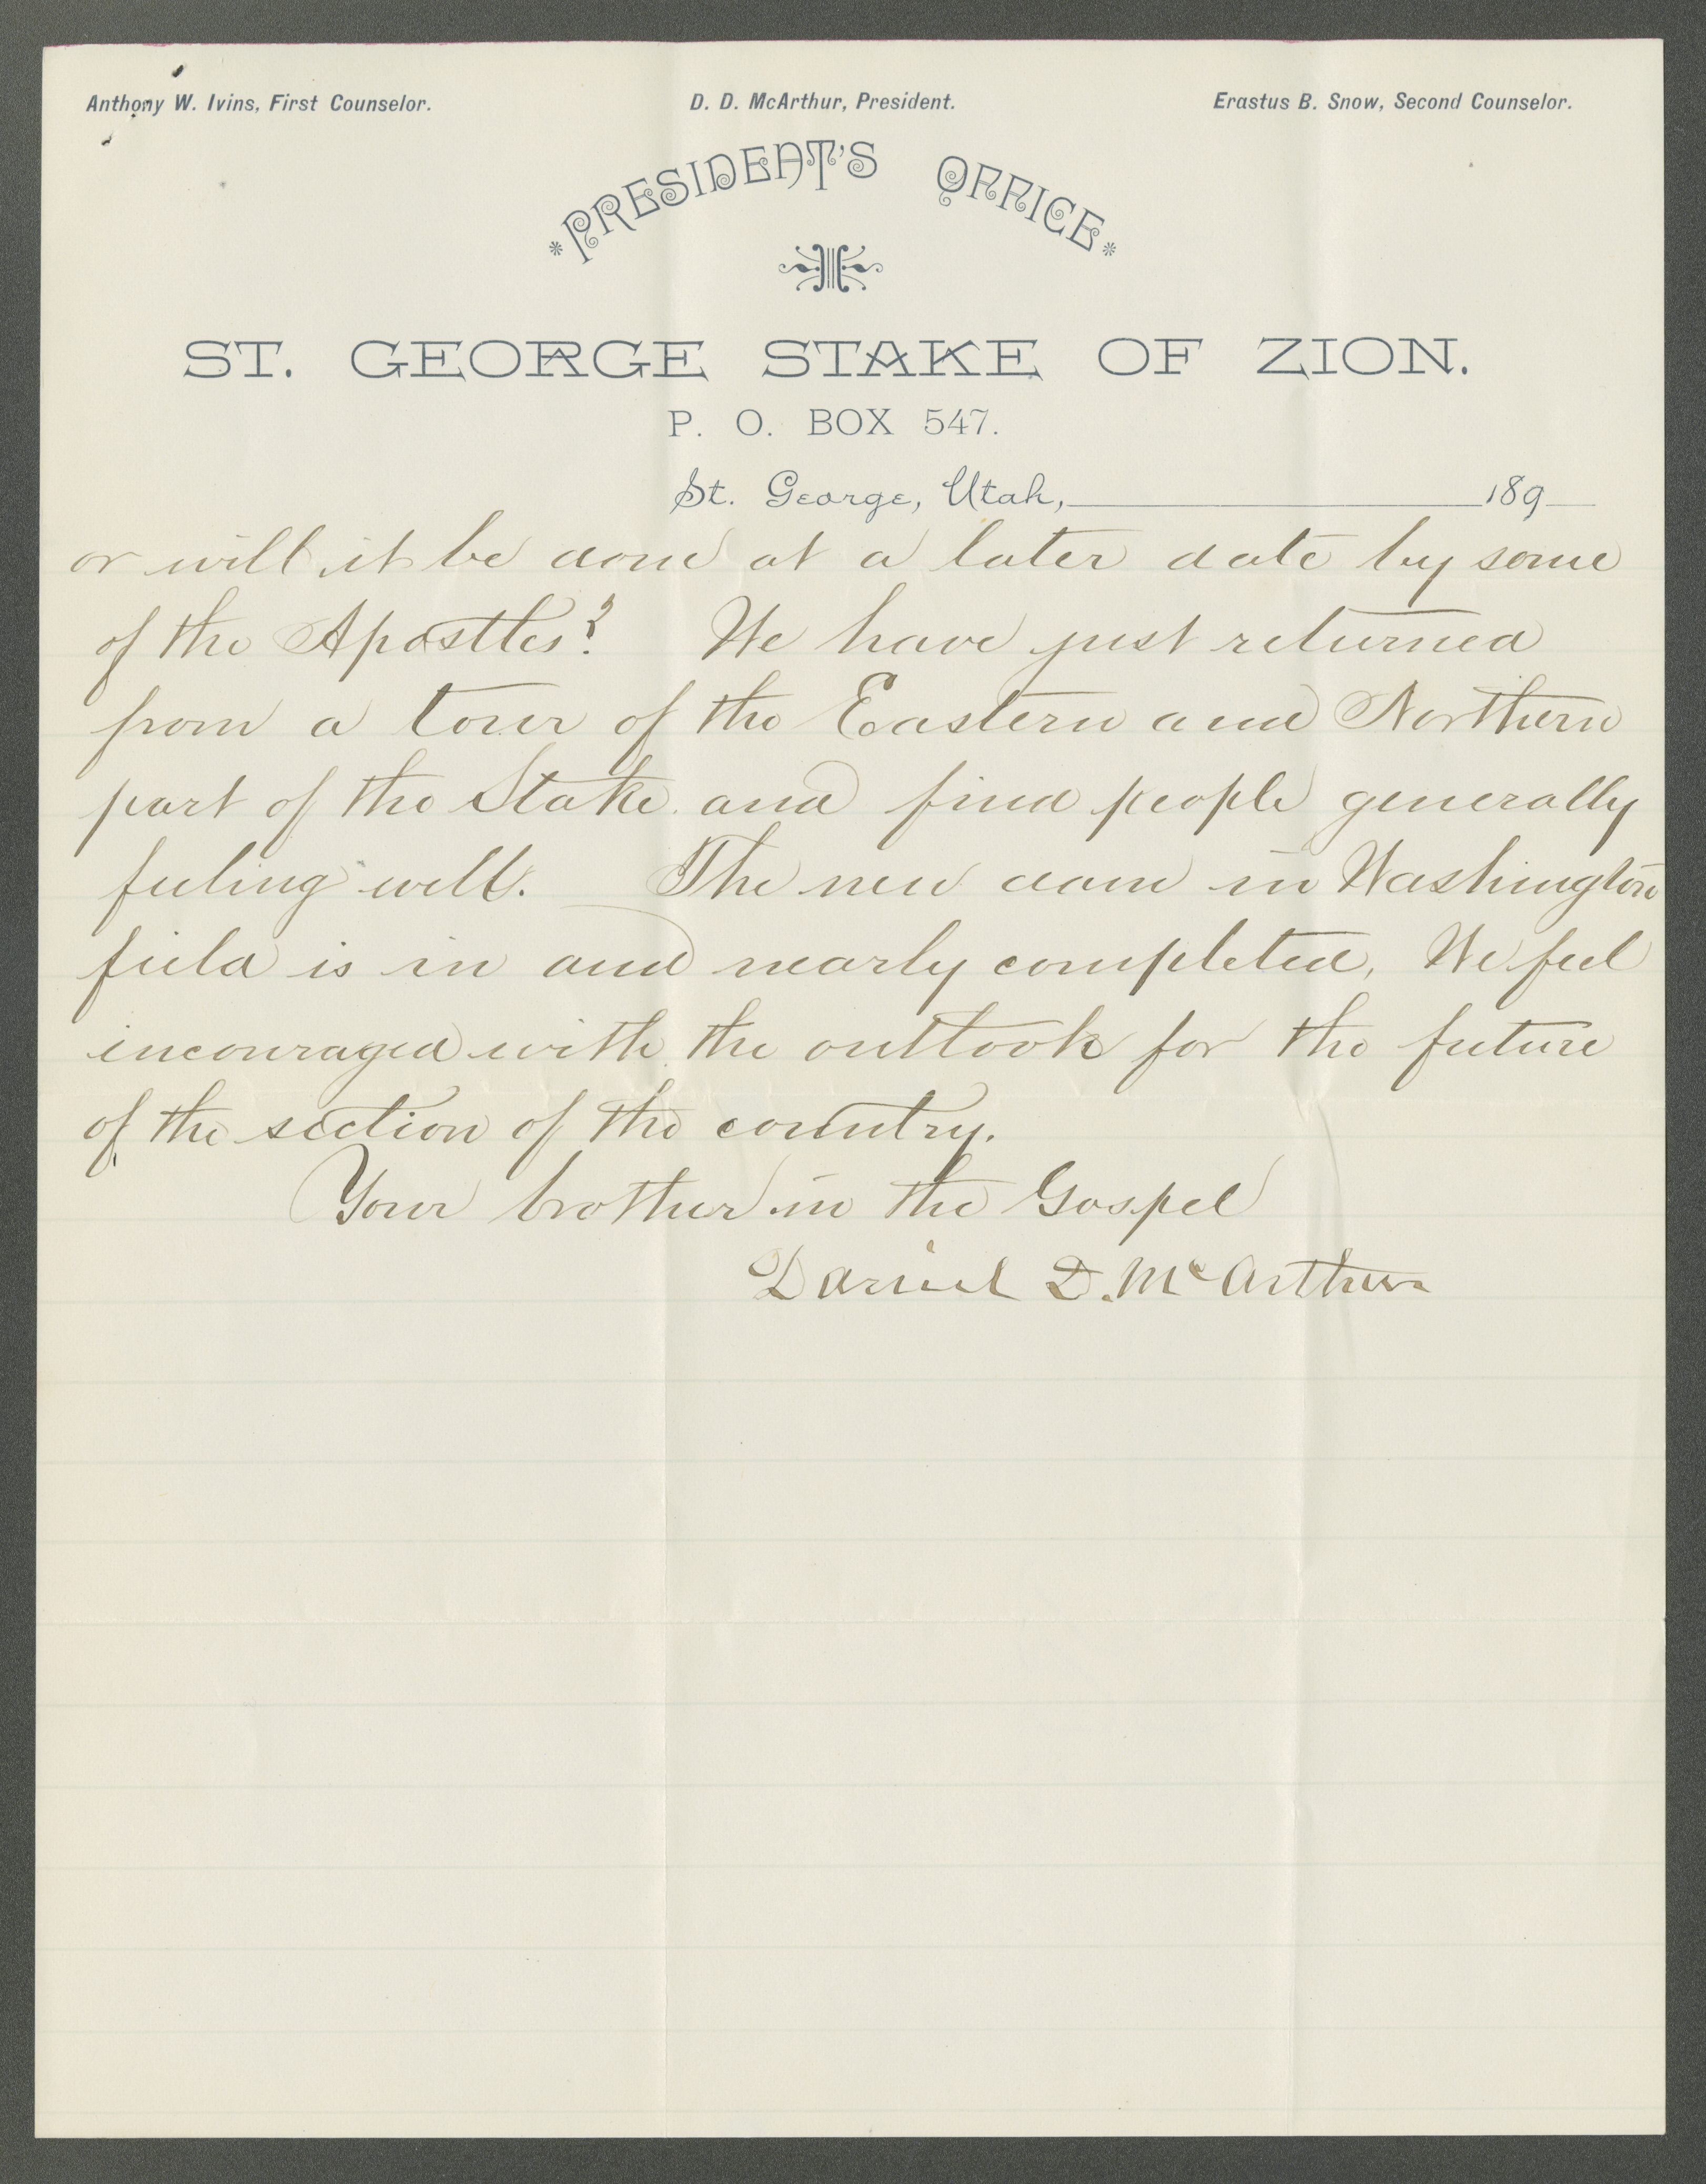 Anthony W. Ivins, First Counselor. D. D. McArthur, President. Erastus B. Snow, Second Counselor.
PRESIDENT'S OFFICE
ST. GEORGE STAKE OF ZION.
P. O. BOX 547.
St. George, Utah, 189
or will it be done at a later date by some
of the Apostles? We have just returned
from a tour of the Eastern and Northern
part of the Stake and find people generally
feeling well. The new dam in Washington
field is in and nearly completed, We feel
incouraged with the outlook for the future
of the section of the country.
Your brother in the Gospel
Daniel D. McArthur